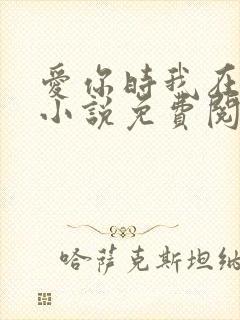 愛你時我在
小說免費閱
哈萨克斯坦纳